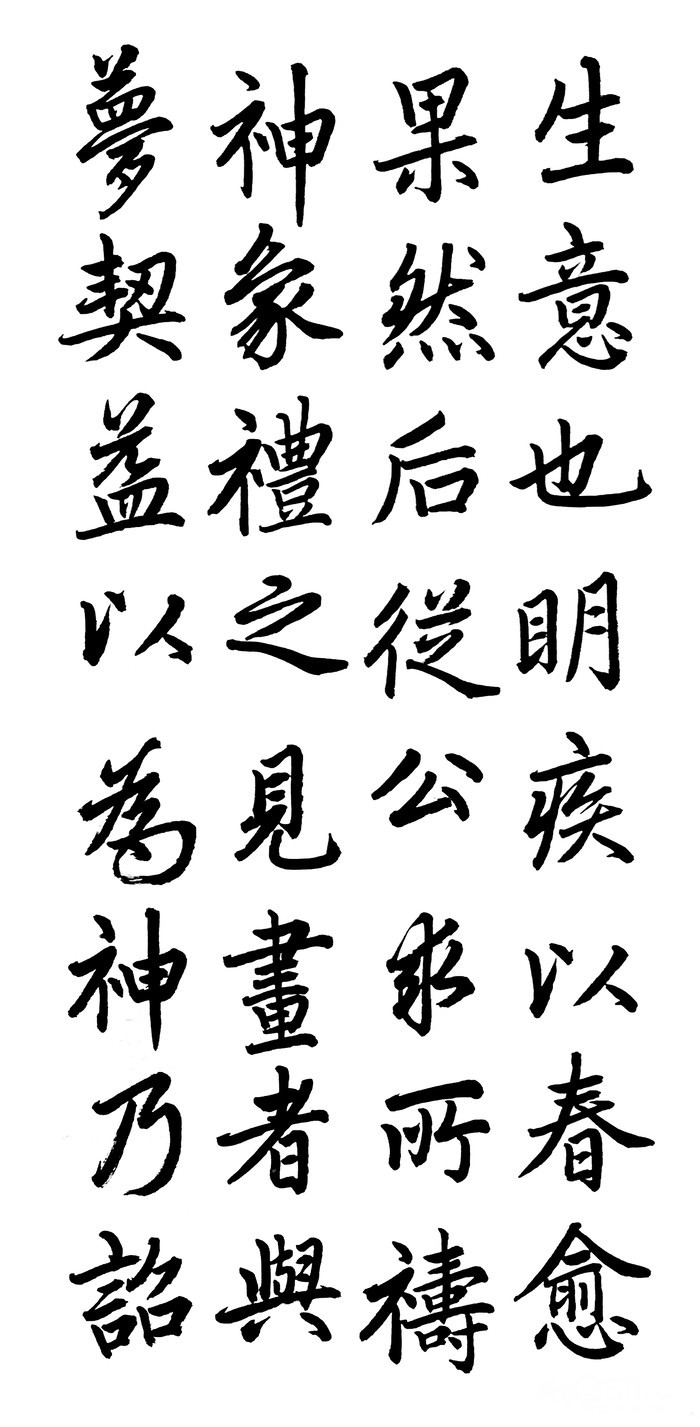 生意也明疾以春愈
果然后從公求所禱
神象禮之見畫者與
夢契葢以為神乃詔